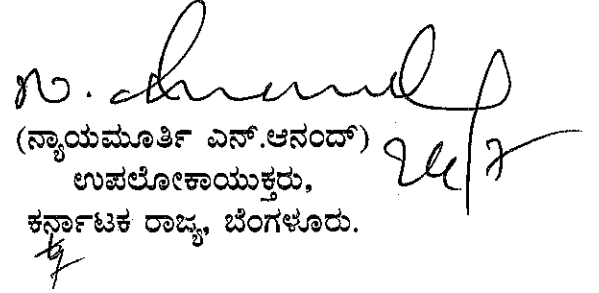 N. Anand
(ನ್ಯಾಯಮೂರ್ತಿ ಎನ್.ಆನಂದ್)
ಉಪಲೋಕಾಯುಕ್ತರು,
ಕರ್ನಾಟಕ ರಾಜ್ಯ, ಬೆಂಗಳೂರು.